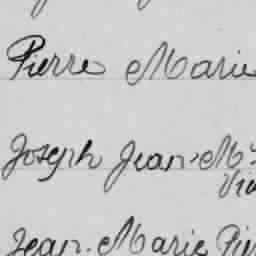 Pierre Marie
Joseph Jean-M
Jean-Marie